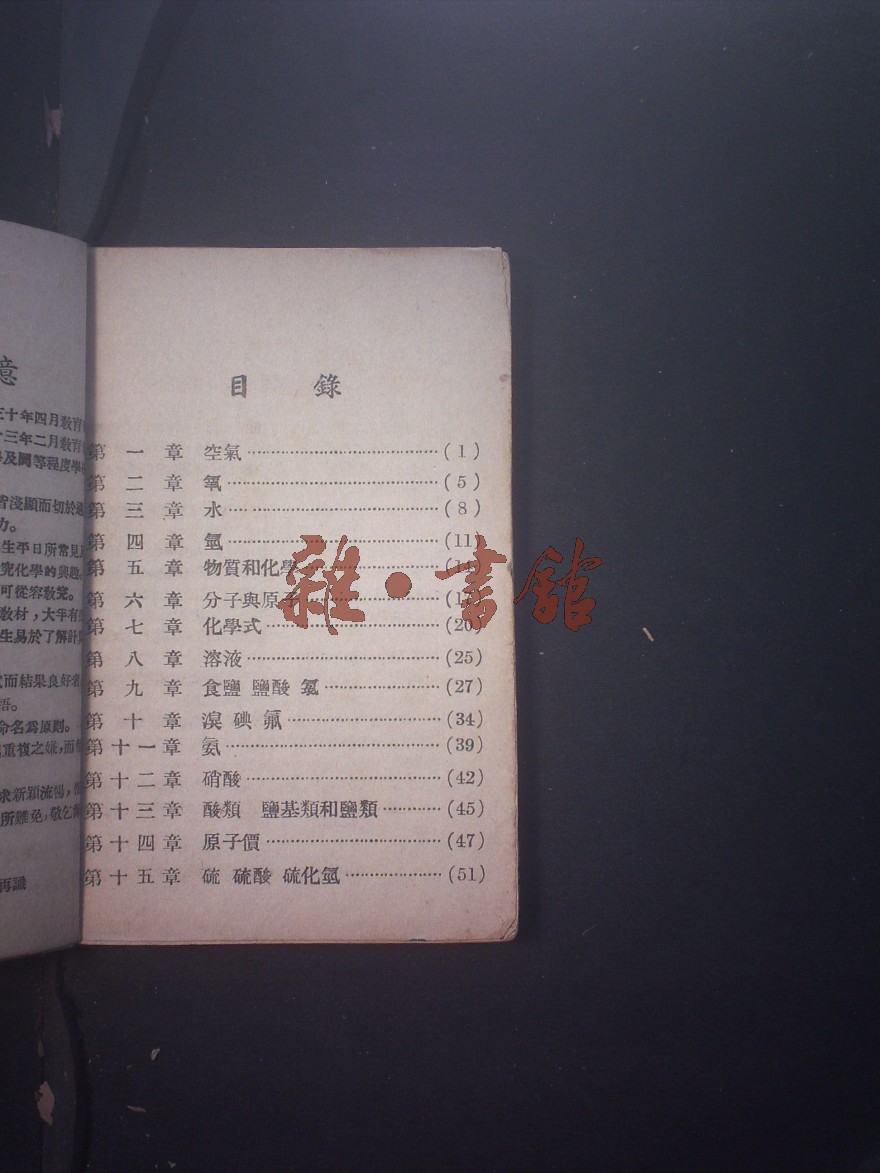 意
三十年四月教育
十三年二月教育
及同等程度學
皆淺顯而切於
力。
生平日所常見
究化學的興趣。
可從容敎完。
敎材，大半有
生易於了解計
而結果良好者
語。
命名爲原則。
重複之嫌，而
求新穎流暢，
所難免，敬乞
再識
目錄
第一章 空氣……(1)
第二章 氧……(5)
第三章 水……(8)
第四章 氫……(11)
第五章 物質和化學……(14)
第六章 分子與原子……
第七章 化學式……(20)
第八章 溶液……(25)
第九章 食鹽 鹽酸 氯……(27)
第十章 溴 碘 氟……(34)
第十一章 氨……(39)
第十二章 硝酸……(42)
第十三章 酸類 鹽基類和鹽類……(45)
第十四章 原子價……(47)
第十五章 硫 硫酸 硫化氫……(51)
雜·書館